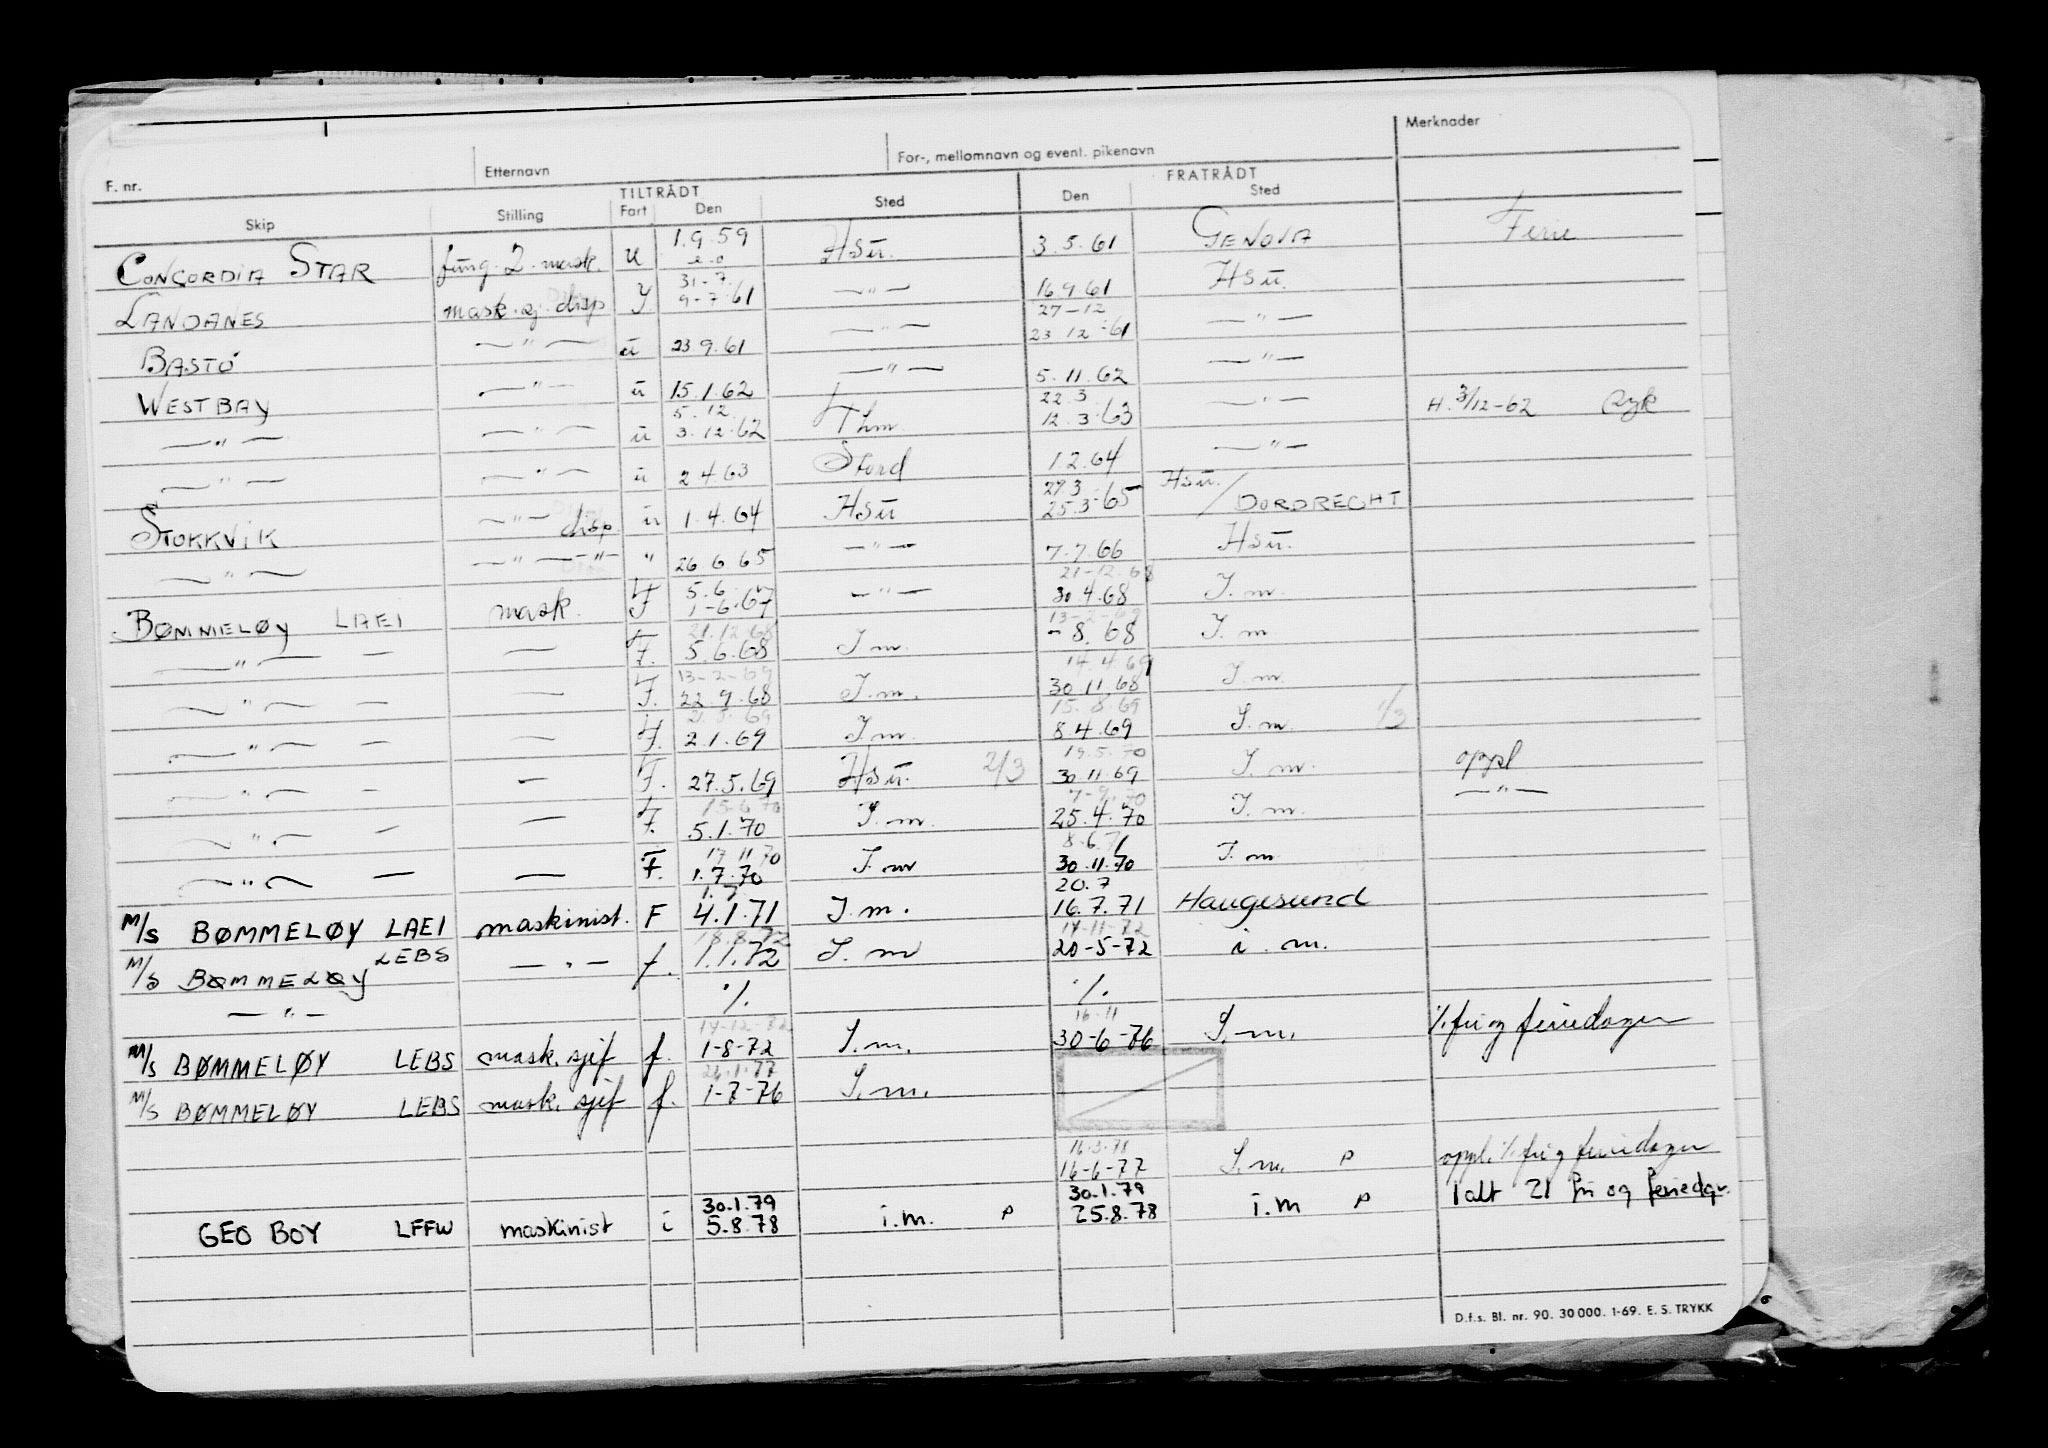 Merknader
F. nr. Etternavn For-, mellomnavn og event. pikenavn
TILTRÅDT FRATRÅDT
Skip Stilling Fart Den Sted Den Sted
CONCORDIA STAR fung. 2. mask. u 1.9.59 Hsu. 3.5.61 GENOVA Ferie
31-7.
LANDANES mask.sj. disp J. 9-7-61 —"— 16.9.61 Hsu.
27-12
BASTØ —"— ü 23.9.61 —"— 23.12-61 —"—
WESTBAY —"— ü 15.1.62 —"— 5.11.62 —"—
5.12. 22.3
—"— —"— ü 3.12.62 Thm. 12.3.63 —"— H. 3/12-62 syk
—"— —"— ü 2.4.63 Stord 1.2.64 —"—
27.3 Hsu.
STOKKVIK —"— disp. ü 1.4.64 Hsu 25.3-65 / DORDRECHT
—"— —"— —"— " 26.6.65 —"— 7.7.66 Hsu.
F 5.6. 21-12.68
BØMMELØY LAEI mask. F 1-6.67 —"— 30.4.68 I.m.
F 21.12.68 13-2-69
—"— — — F. 5.6.68 I.m. -8.68 I.m.
F 13-2-69 14.4.69
—"— — — F. 22.9.68 I.m. 30.11.68 I.m.
F 15.8.69
—"— — — F. 2.1.69 I.m. 8.4.69 I.m. 1/3
F 19.5.70
—"— — — F. 27.5.69 Hsu. 2/3 30.11.69 I.m. oppl
F 15.6.70 7-9.70
—"— — — F. 5.1.70 I.m. 25.4.70 I.m. —"—
F 17.11.70 8.6.71
—"— — — F. 1.7.70 I.m 30.11.70 I.m
1.7. 20.7
M/S BØMMELØY LAEI maskinist. F 4.1.71 I.m. 16.7.71 Haugesund
18.8.72 17-11-72
M/S BØMMELØY LEBS —"— f. 1.1.72 I.m 20-5-72 i.m.
—"— ·/. ·/.
14-12-72 16-11
M/S BØMMELØY LEBS mask. sjef f. 1-8-72 I.m. 30-6-76 I.m. ·/. fri og feriedager
26.1.77
M/S BØMMELØY LEBS mask. sjef f. 1-7-76 I.m.
16.3.78
16-6-77 I.m. P oppl. ·/. fri og feriedager
30.1.79 30.1.79
GEO BOY LFFW maskinist i 5.8.78 i.m. P 25.8.78 i.m P I alt 21 fri og feriedgr.
D.f.s. Bl. nr. 90. 30 000. 1-69. E. S. TRYKK